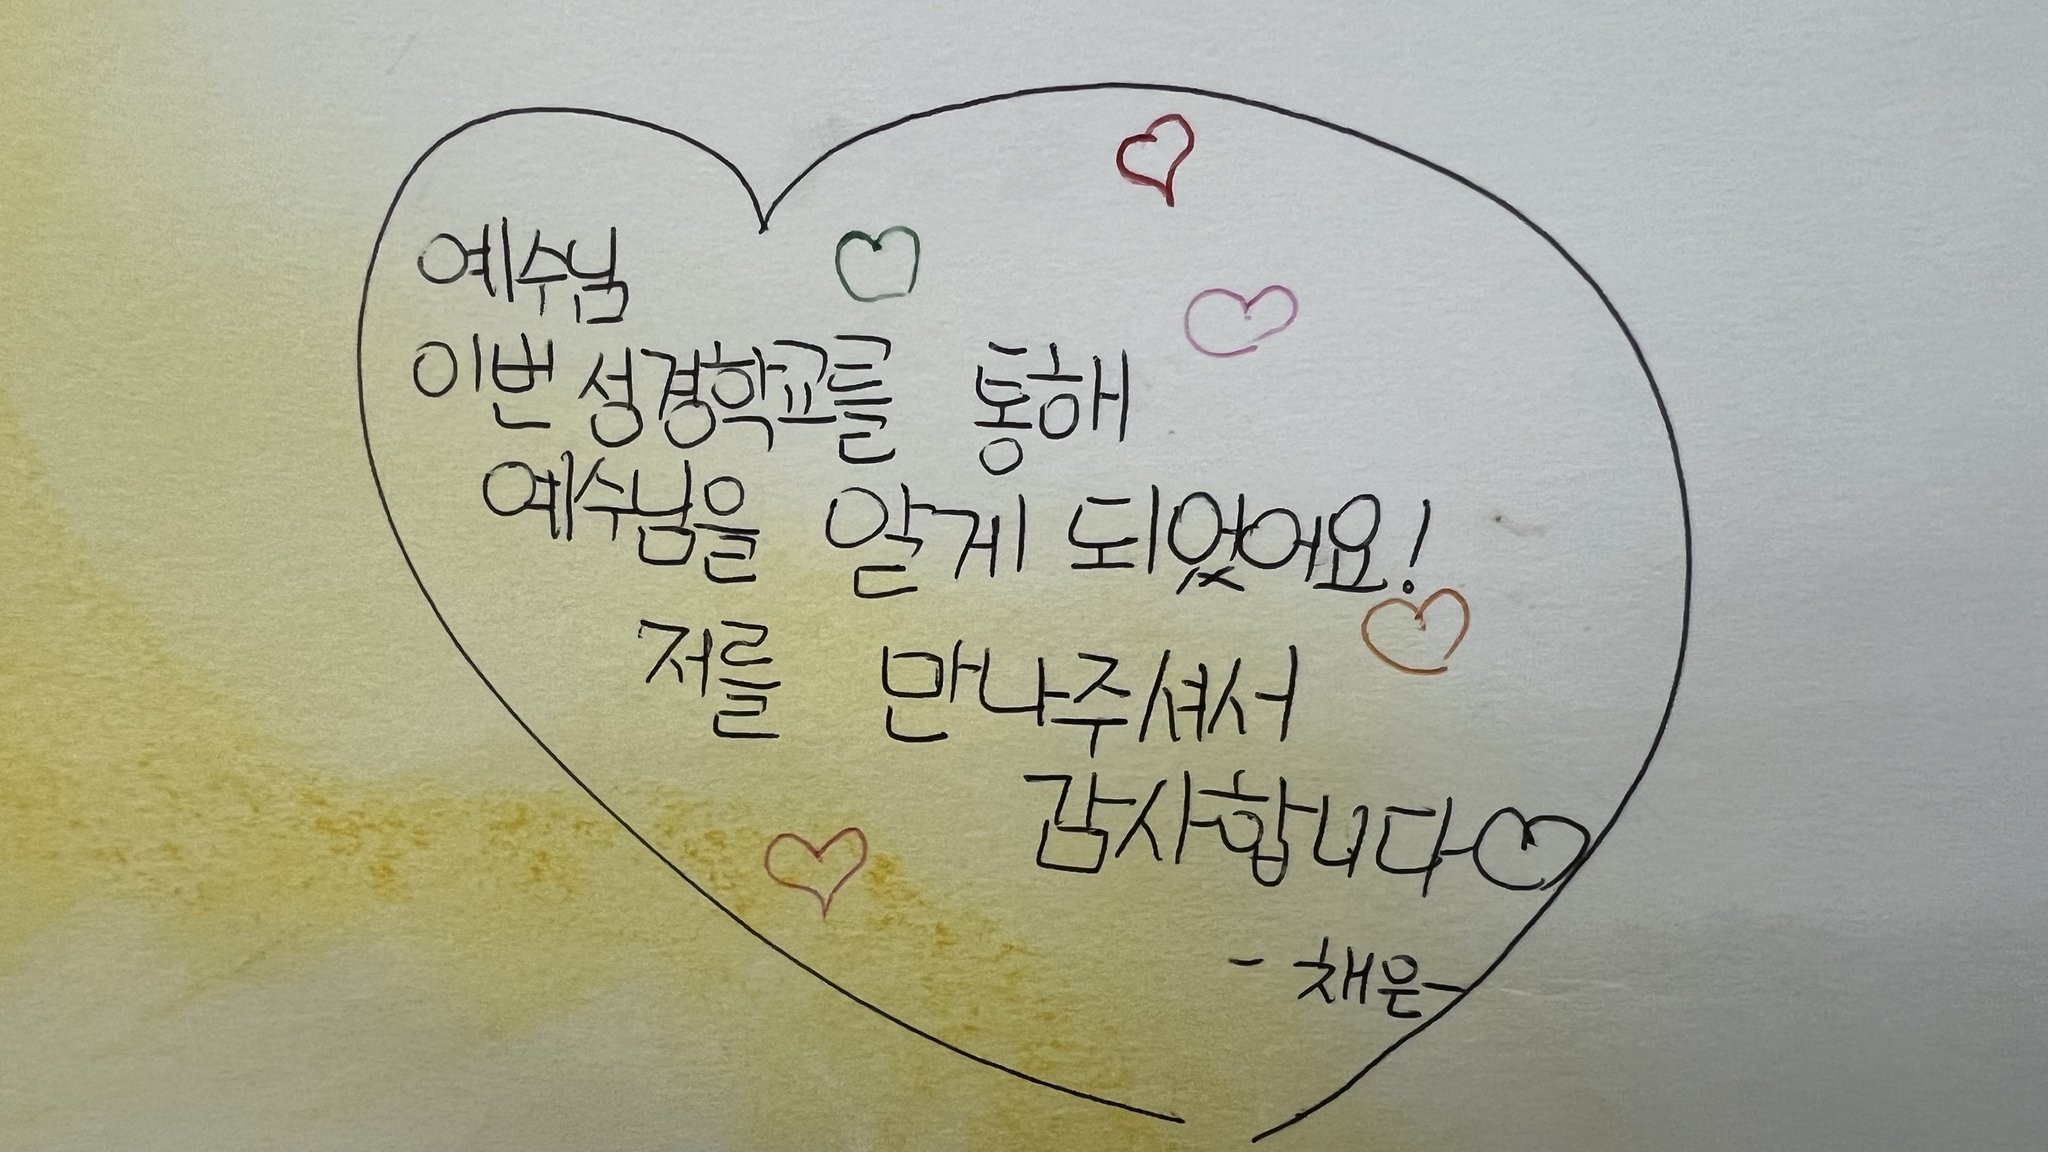 예수님
이번 성경학교를 통해
예수님을 알게 되었어요!
저를 만나주셔서
감사합니다
- 채은-